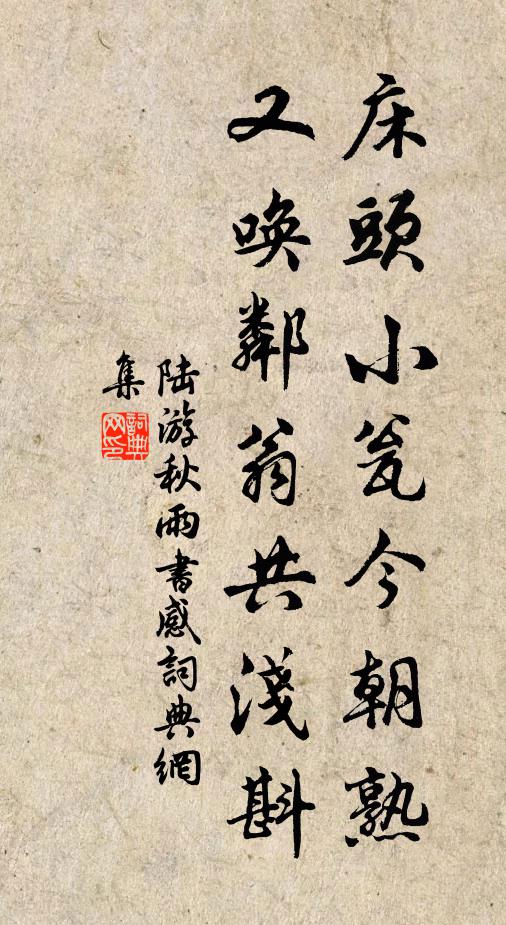 床頭小瓮今朝熟
又喚鄰翁共淺斟
陆游秋雨書感詞典網
集
詞典
网印